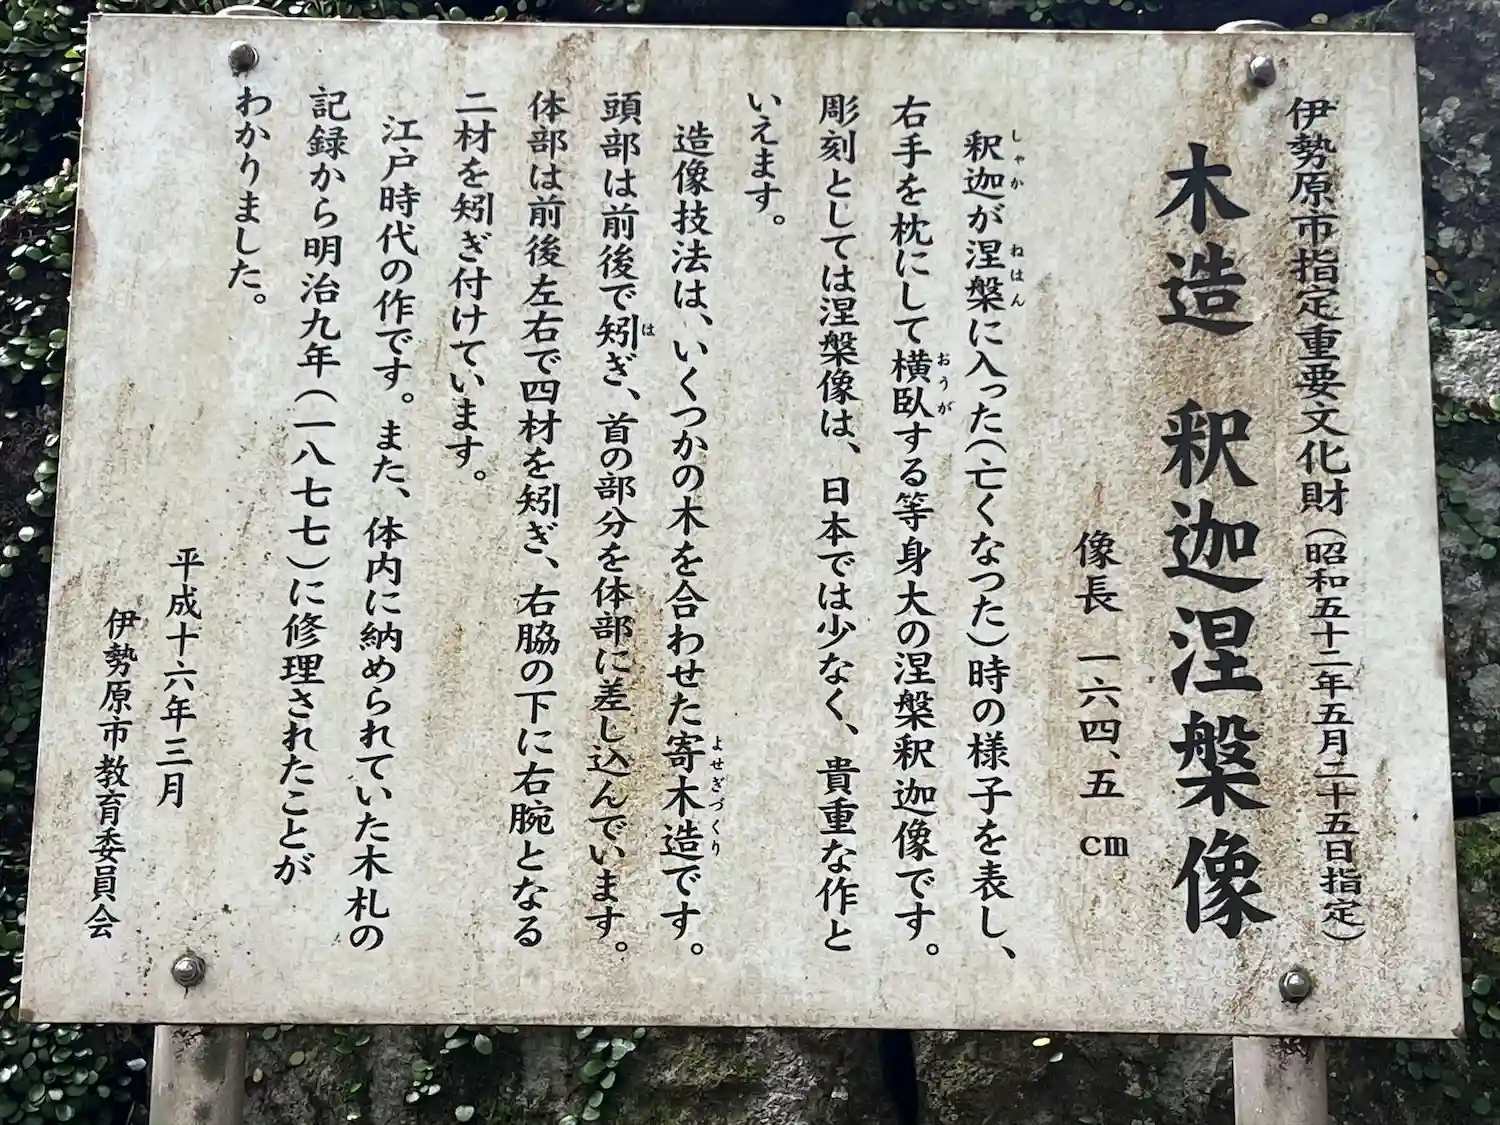 伊勢原市指定重要文化財（昭和五十二年五月二十五日指定）
木造　釈迦涅槃像
像長　一六四、五cm
釈迦が涅槃に入った（亡くなつた）時の様子を表し、
右手を枕にして横臥する等身大の涅槃釈迦像です。
彫刻としては涅槃像は、日本では少なく、貴重な作と
いえます。
造像技法は、いくつかの木を合わせた寄木造です。
頭部は前後で矧ぎ、首の部分を体部に差し込んでいます。
体部は前後左右で四材を矧ぎ、右脇の下に右腕となる
二材を矧ぎ付けています。
江戸時代の作です。また、体内に納められていた木札の
記録から明治九年（一八七七）に修理されたことが
わかりました。
平成十六年三月
伊勢原市教育委員会
しゃか
ねはん
おうが
よせぎづくり
は